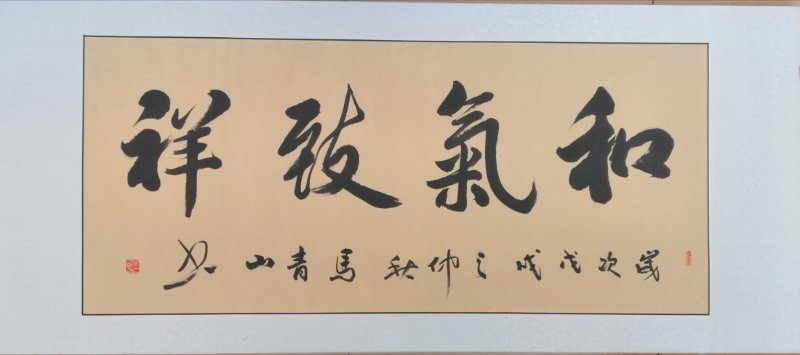 和氣致祥
歲次戊戌之仲秋馬青山书